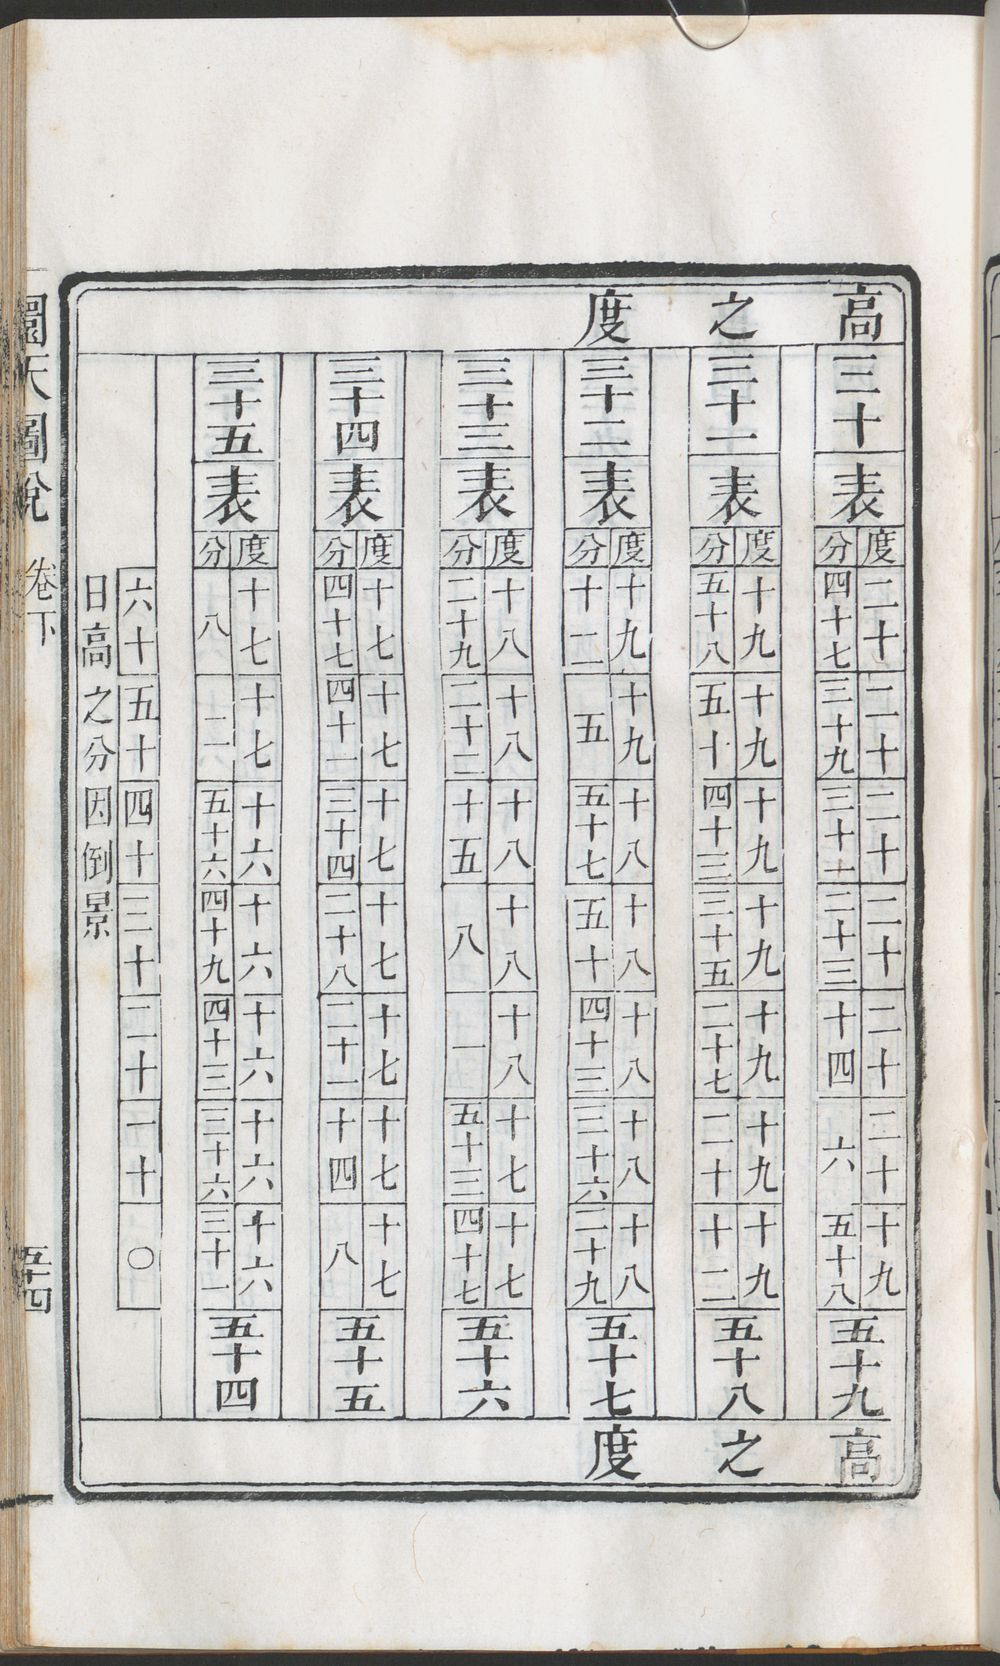 高之度
三十
表
度 二十 二十 二十 二十 二十 二十 十九
分 四十七 三十九 三十一 二十三 十四 六 五十八
五十九
三十一
表
度 十九 十九 十九 十九 十九 十九 十九
分 五十八 五十 四十三 三十五 二十七 二十 十二
五十八
三十二
表
度 十九 十九 十八 十八 十八 十八 十八
分 十二 五 五十七 五十 四十三 三十六 二十九
五十七
三十三
表
度 十八 十八 十八 十八 十八 十七 十七
分 二十九 二十二 十五 八 一 五十三 四十七
五十六
三十四
表
度 十七 十七 十七 十七 十七 十七 十七
分 四十七 四十一 三十四 二十八 二十一 十四 八
五十五
三十五
表
度 十七 十七 十六 十六 十六 十六 十六
分 八 二 五十六 四十九 四十三 三十六 三十一
五十四
六十 五十 四十 三十 二十 一十 〇
日高之分因倒景
高之度
圜天圖說 卷下